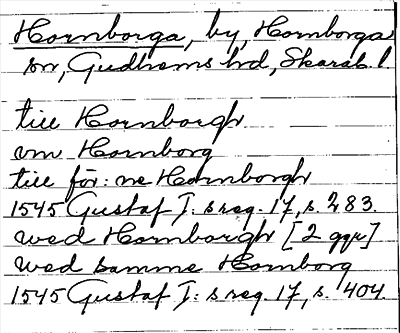 Hornborga, by, Hornborga
sn, Gudhems hd, Skarab. l
till Hornborgh
vm Hornborg
till för:ne Hornborgh
1545 Gustaf I:s reg. 17, s. 283.
wed Hornborgh [2 ggr]
wed samme Hornborg
1545 Gustaf I:s reg. 17, s. 404.